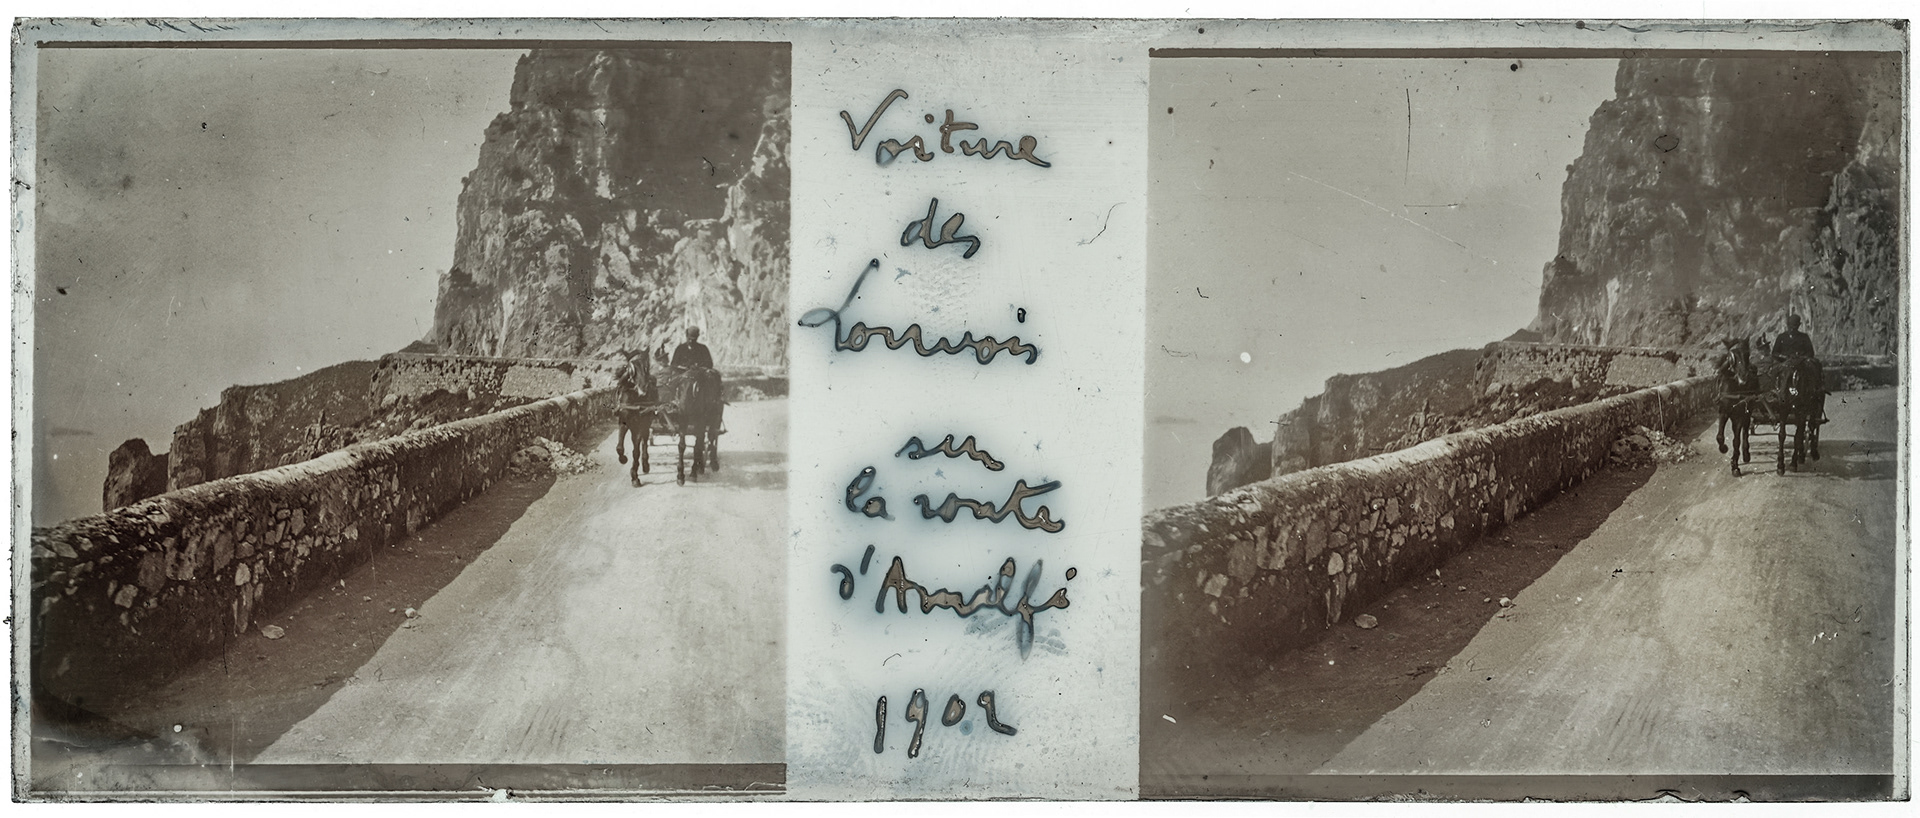 Voiture
des
Louvois
sur
la route
d'Amalfi
1902